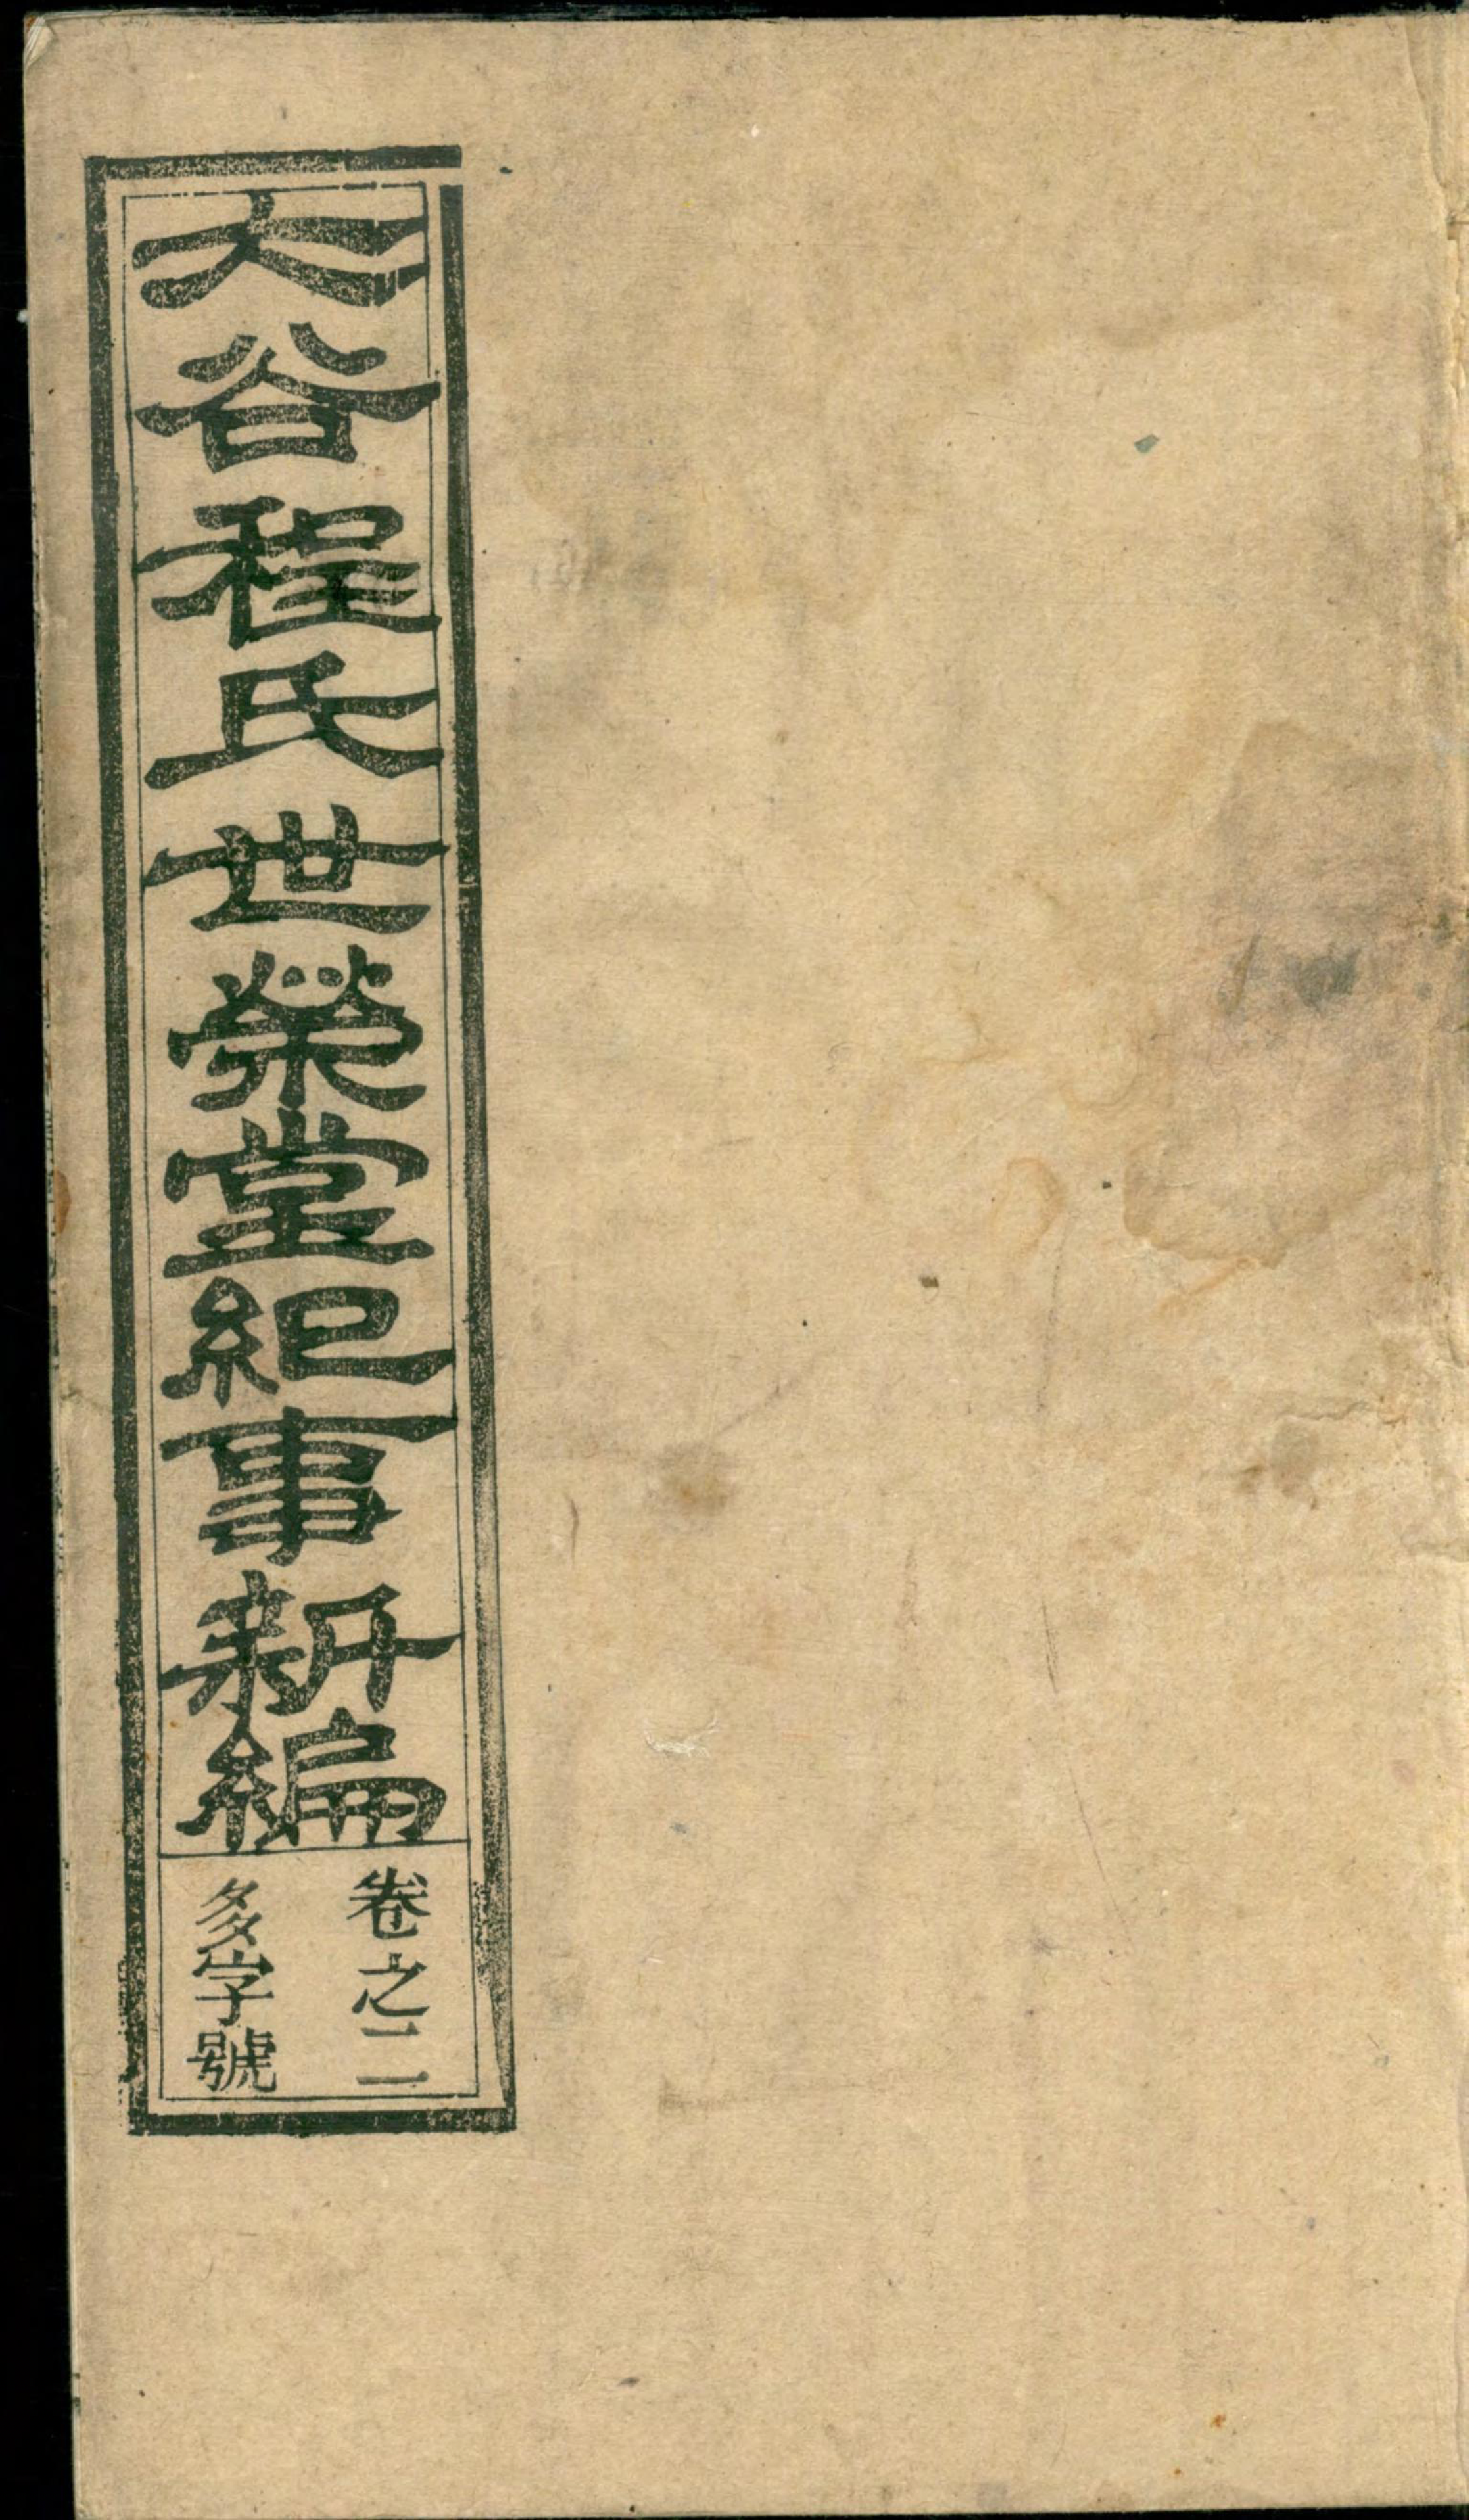 大谷程氏世榮堂紀事新編
卷之二
多字號